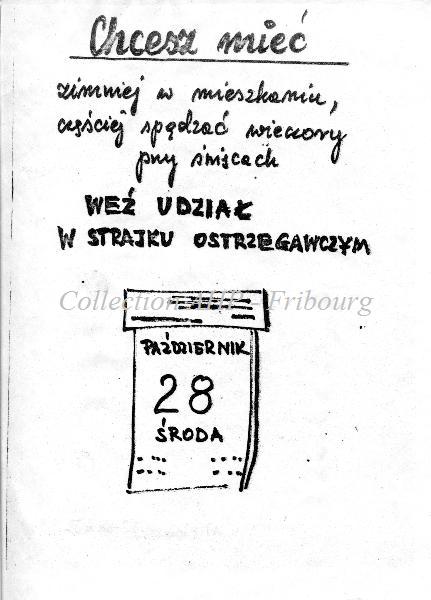 Chcesz mieć
zimniej w mieszkaniu,
częściej spędzać wieczory
przy świecach
WEŹ UDZIAŁ
W STRAJKU OSTRZEGAWCZYM
Fribourg
PAŹDZIERNIK
28
ŚRODA